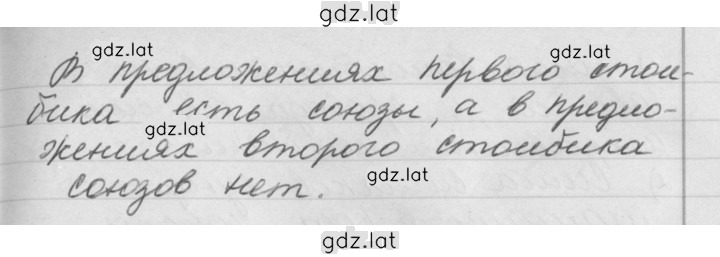 gdz.lat
gdz.lat gdz.lat
В предложениях первого стол-
бика есть союзы, а в предло-
gdz.lat
жениях второго столбика
союзов нет. gdz.lat
gdz.lat